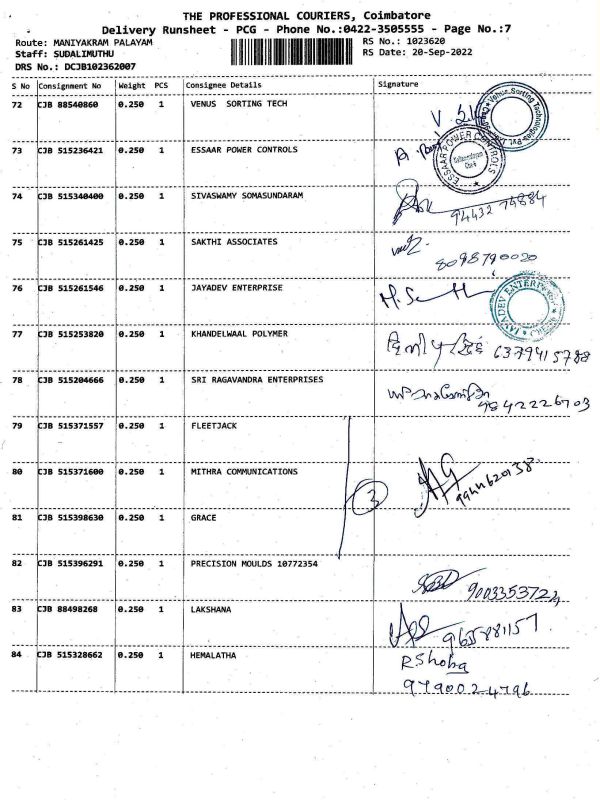 THE PROFESSIONAL COURIERS, Coimbatore
Delivery Runsheet - PCG - Phone No.:0422-3505555 - Page No.:7
Route: MANIYAKRAM PALAYAM RS No.: 1023620
Staff: SUDALIMUTHU RS Date: 20-Sep-2022
DRS No.: DCJB102362007
S No Consignment No Weight PCS Consignee Details Signature
72 CJB 88540860 0.250 1 VENUS SORTING TECH
73 CJB 515236421 0.250 1 ESSAAR POWER CONTROLS
ESSAAR POWER CONTROLS
74 CJB 515340400 0.250 1 SIVASWAMY SOMASUNDARAM
75 CJB 515261425 0.250 1 SAKTHI ASSOCIATES
8098790020
76 CJB 515261546 0.250 1 JAYADEV ENTERPRISE
77 CJB 515253820 0.250 1 KHANDELWAAL POLYMER
6379415788
78 CJB 515204666 0.250 1 SRI RAGAVANDRA ENTERPRISES
9842226703
79 CJB 515371557 0.250 1 FLEETJACK
80 CJB 515371600 0.250 1 MITHRA COMMUNICATIONS
3
9944620138
81 CJB 515398630 0.250 1 GRACE
82 CJB 515396291 0.250 1 PRECISION MOULDS 10772354
83 CJB 88498268 0.250 1 LAKSHANA
9655881157
84 CJB 515328662 0.250 1 HEMALATHA
R Shoba
9790024796